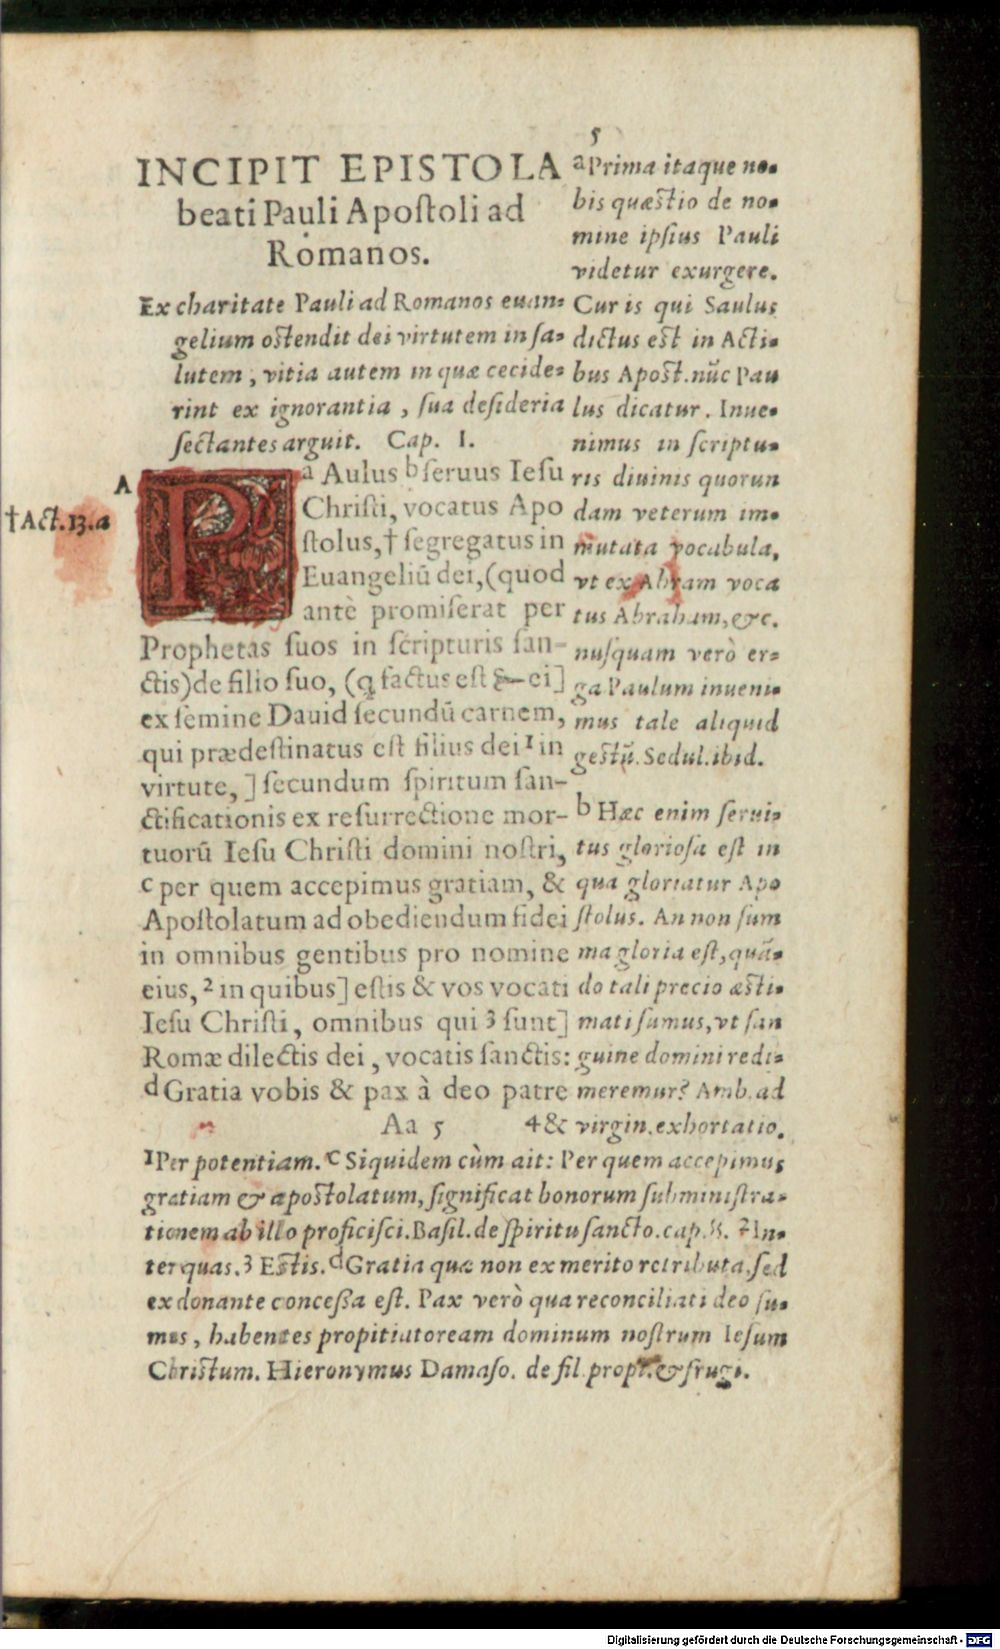 5
INCIPIT EPISTOLA
beati Pauli Apostoli ad
Romanos.
Ex charitate Pauli ad Romanos euan-
gelium ostendit dei virtutem in sa-
lutem, vitia autem in quæ cecide-
rint ex ignorantia, sua desideria
sectantes arguit. Cap. I.
A
†Act.13.a
P a Aulus b seruus Iesu
Christi, vocatus Apo
stolus,† segregatus in
Euangeliũ dei,(quod
antè promiserat per
Prophetas suos in scripturis san-
ctis)de filio suo, (q factus est ei]
ex semine Dauid secundũ carnem,
qui prædestinatus est filius dei 1 in
virtute, ] secundum spiritum san-
ctificationis ex resurrectione mor-
tuorũ Iesu Christi domini nostri,
c per quem accepimus gratiam, &
Apostolatum ad obediendum fidei
in omnibus gentibus pro nomine
eius, 2 in quibus] estis & vos vocati
Iesu Christi, omnibus qui 3 sunt]
Romæ dilectis dei, vocatis sanctis:
d Gratia vobis & pax à deo patre
Aa 5 4 &
a Prima itaque no-
bis quæstio de no-
mine ipsius Pauli
videtur exurgere.
Cur is qui Saulus
dictus est in Acti-
bus Apost. nũc Pau
lus dicatur. Inue-
nimus in scriptu-
ris diuinis quorun
dam veterum im-
mutata vocabula,
vt ex Abram voca
tus Abraham, &c.
nusquam verò er-
ga Paulum inueni-
mus tale aliquid
gestũ. Sedul. ibid.
b Hæc enim serui-
tus gloriosa est in
qua gloriatur Apo
stolus. An non sum
ma gloria est, quã-
do tali precio æsti-
mati sumus, vt san
guine domini redi-
meremur? Amb. ad
virgin. exhortatio.
1 Per potentiam. c Siquidem cùm ait: Per quem accepimus
gratiam & apostolatum, significat bonorum subministra-
tionem ab illo proficisci. Basil. de spiritu sancto. cap. 2 In-
ter quas. 3 Estis. d Gratia quæ non ex merito retributa, sed
ex donante concessa est. Pax verò qua reconciliati deo su-
mus, habentes propitiatoream dominum nostrum Iesum
Christum. Hieronymus Damaso. de fil. & frugi.
Digitalisierung gefördert durch die Deutsche Forschungsgemeinschaft - DFG